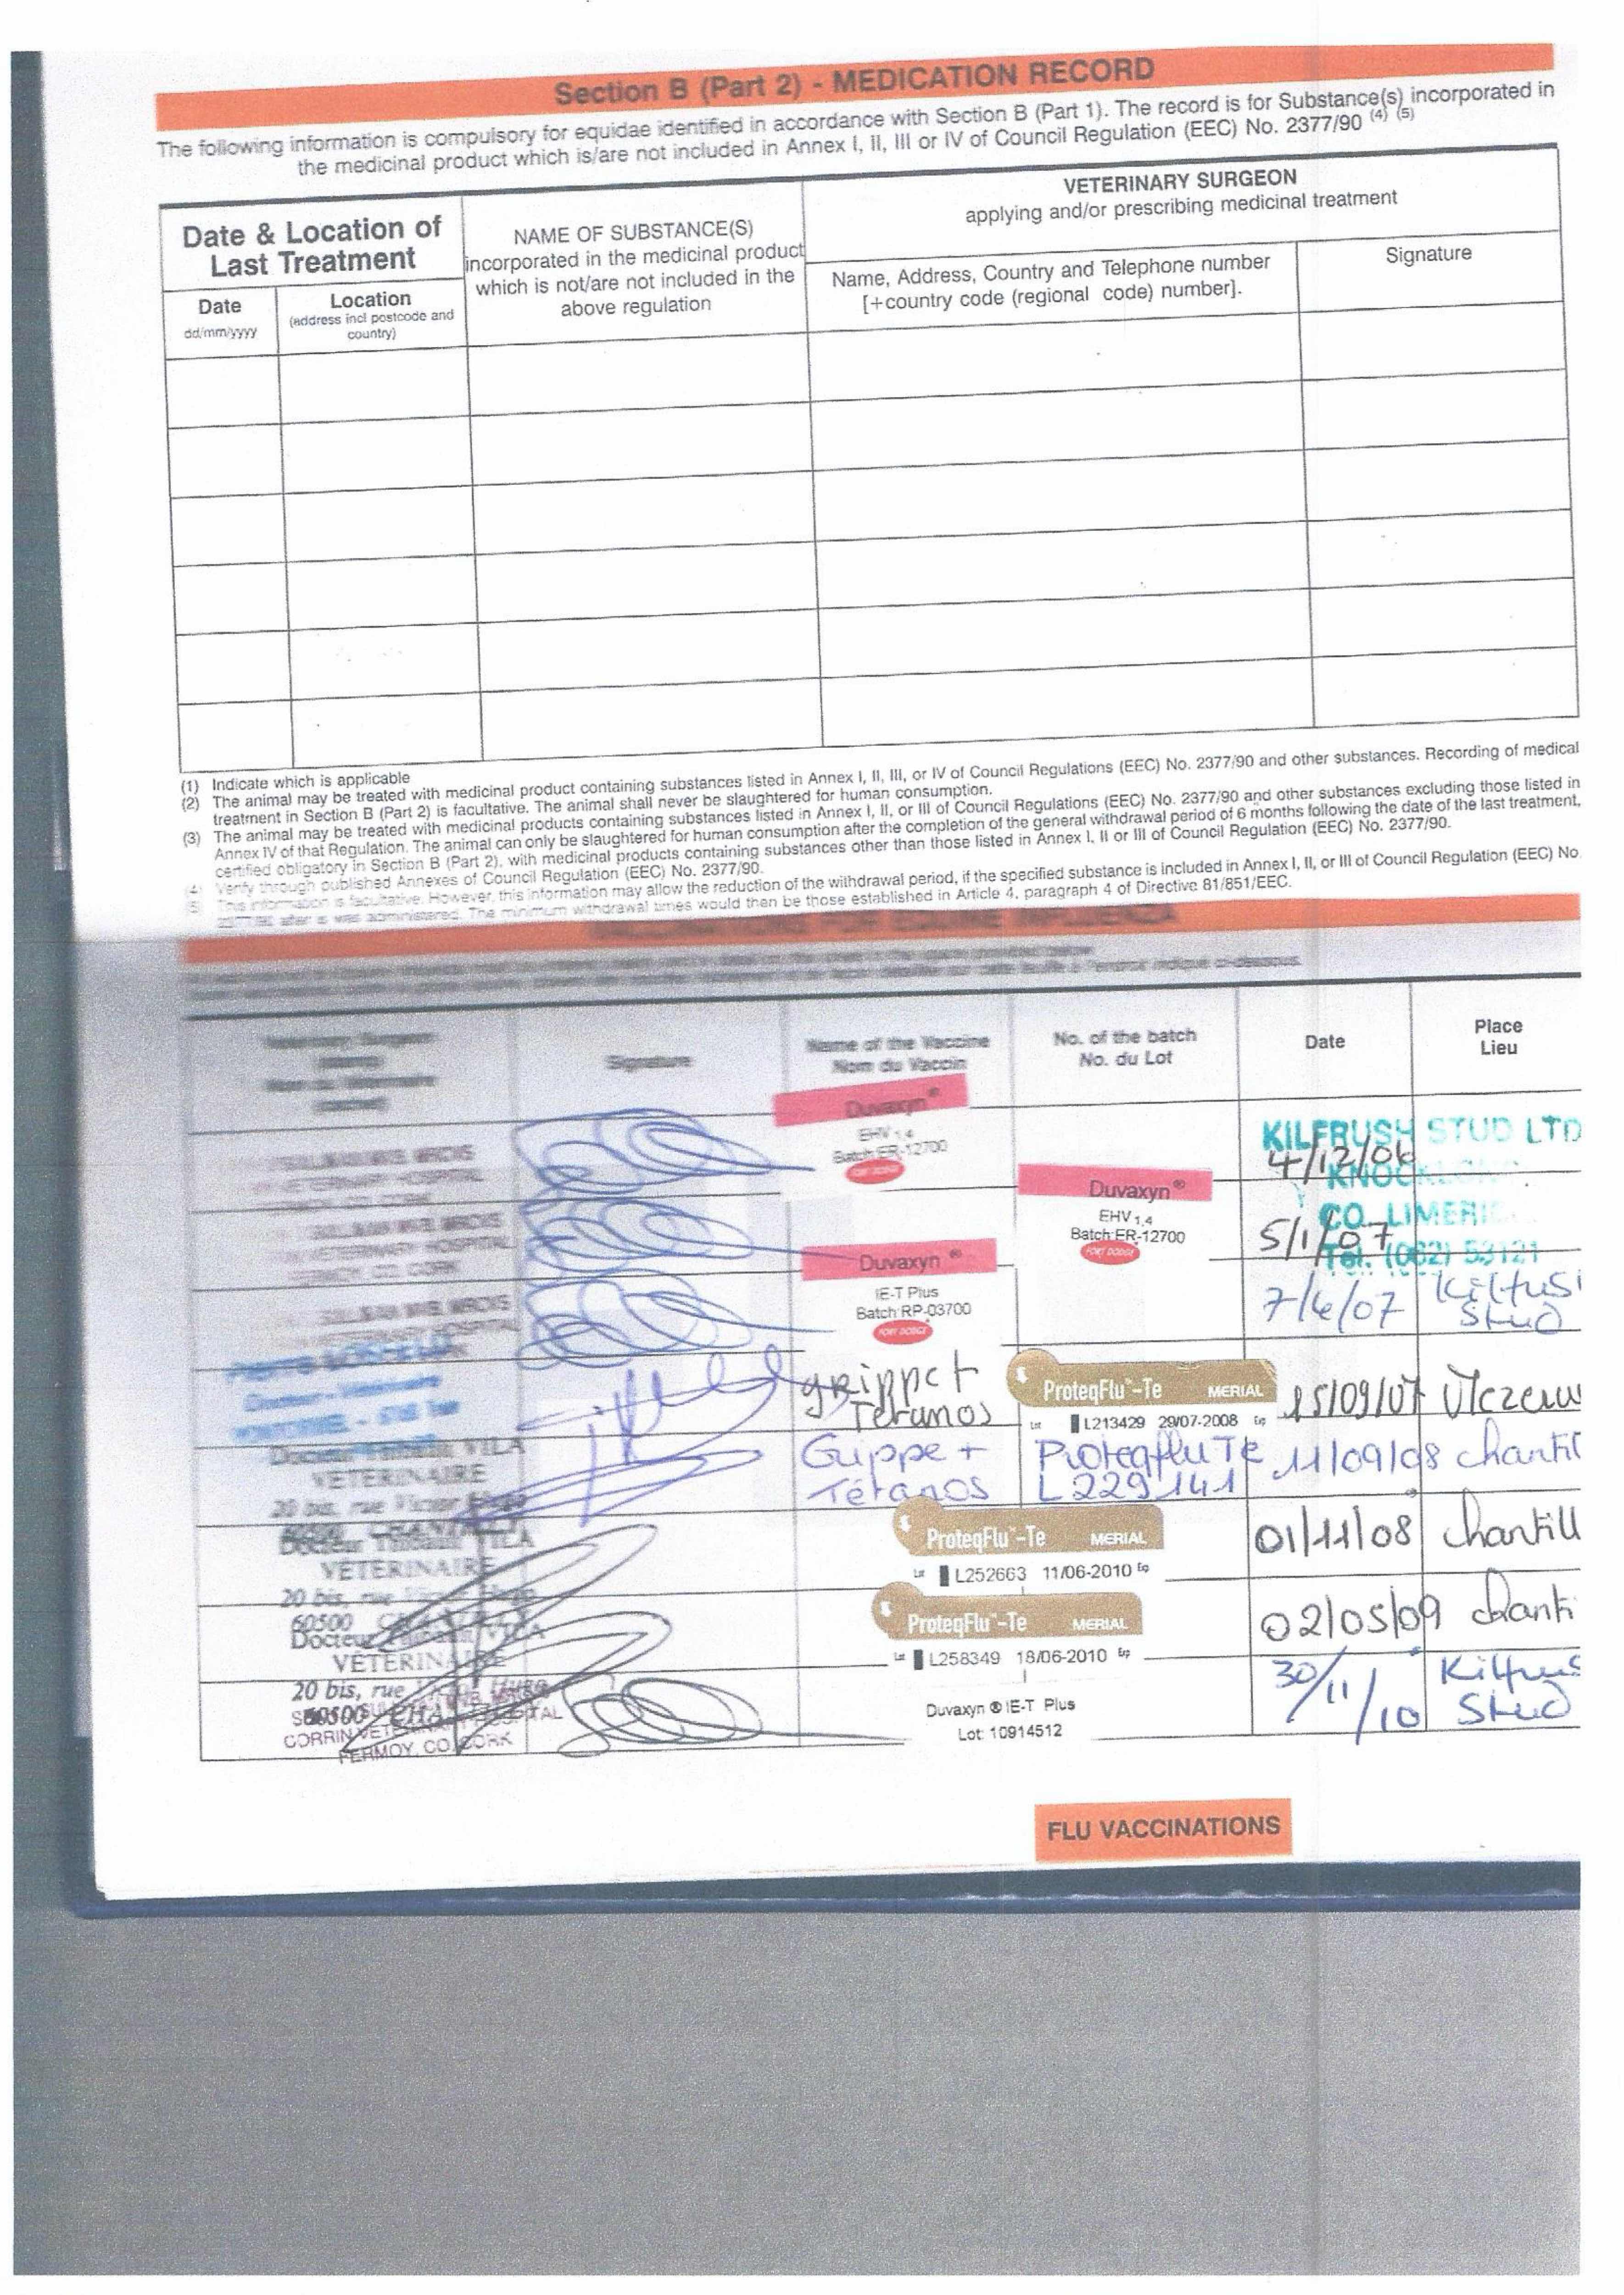 Section B (Part 2) - MEDICATION RECORD
The following information is compulsory for equidae identified in accordance with Section B (Part 1). The record is for Substance(s) incorporated in
the medicinal product which is/are not included in Annex I, II, III or IV of Council Regulation (EEC) No. 2377/90 (4) (5)
Date & Location of
Last Treatment
NAME OF SUBSTANCE(S)
incorporated in the medicinal product
which is not/are not included in the
above regulation
VETERINARY SURGEON
applying and/or prescribing medicinal treatment
Date
dd/mm/yyyy
Location
(address incl postcode and
country)
Name, Address, Country and Telephone number
[+country code (regional code) number].
Signature
(1) Indicate which is applicable
(2) The animal may be treated with medicinal product containing substances listed in Annex I, II, III, or IV of Council Regulations (EEC) No. 2377/90 and other substances. Recording of medical
treatment in Section B (Part 2) is facultative. The animal shall never be slaughtered for human consumption.
(3) The animal may be treated with medicinal products containing substances listed in Annex I, II, or III of Council Regulations (EEC) No. 2377/90 and other substances excluding those listed in
Annex IV of that Regulation. The animal can only be slaughtered for human consumption after the completion of the general withdrawal period of 6 months following the date of the last treatment,
certified obligatory in Section B (Part 2), with medicinal products containing substances other than those listed in Annex I, II or III of Council Regulation (EEC) No. 2377/90.
(4) Verify through published Annexes of Council Regulation (EEC) No. 2377/90.
(5) This information is facultative. However, this information may allow the reduction of the withdrawal period, if the specified substance is included in Annex I, II, or III of Council Regulation (EEC) No
2377/90 after is was administered. The minimum withdrawal times would then be those established in Article 4, paragraph 4 of Directive 81/851/EEC.
VACCINATIONS FOR EQUINE INFLUENZA
Signature
Name of the Vaccine
Nom du Vaccin
No. of the batch
No. du Lot
Date
Place
Lieu
Duvaxyn®
EHV 1,4
Batch:ER-12700
FORT DODGE
KILFRUSH STUD LTD
4/12/06
VETERINARY HOSPITAL
Duvaxyn®
EHV 1,4
Batch:ER-12700
FORT DODGE
5/1/07
CO. LIMERIC
Tel. (062) 53121
VETERINARY HOSPITAL
FERMOY, CO. CORK
Duvaxyn®
IE-T Plus
Batch:RP-03700
FORT DODGE
7/6/07
Stud
grippe +
Tetanos
ProteqFlu™-Te MERIAL
Lot L213429 29/07-2008 Exp
15/09/07
Docteur Thibault VILA
VETERINAIRE
Grippe +
Tétanos
Proteqflu Te
L229141
11/09/08
Chantil
Docteur Thibault VILA
VÉTÉRINAIRE
20 bis, rue
60500
ProteqFlu™-Te MERIAL
Lot L252663 11/06-2010 Exp
01/11/08
Chantill
Docteur Thibault VILA
VÉTÉRINAIRE
20 bis, rue
60500
ProteqFlu™-Te MERIAL
Lot L258349 18/06-2010 Exp
02/05/09
Chanti
CORRIN VETERINARY HOSPITAL
FERMOY, CO. CORK
Duvaxyn ® IE-T Plus
Lot: 10914512
30/11/10
Kilfrus
Stud
FLU VACCINATIONS